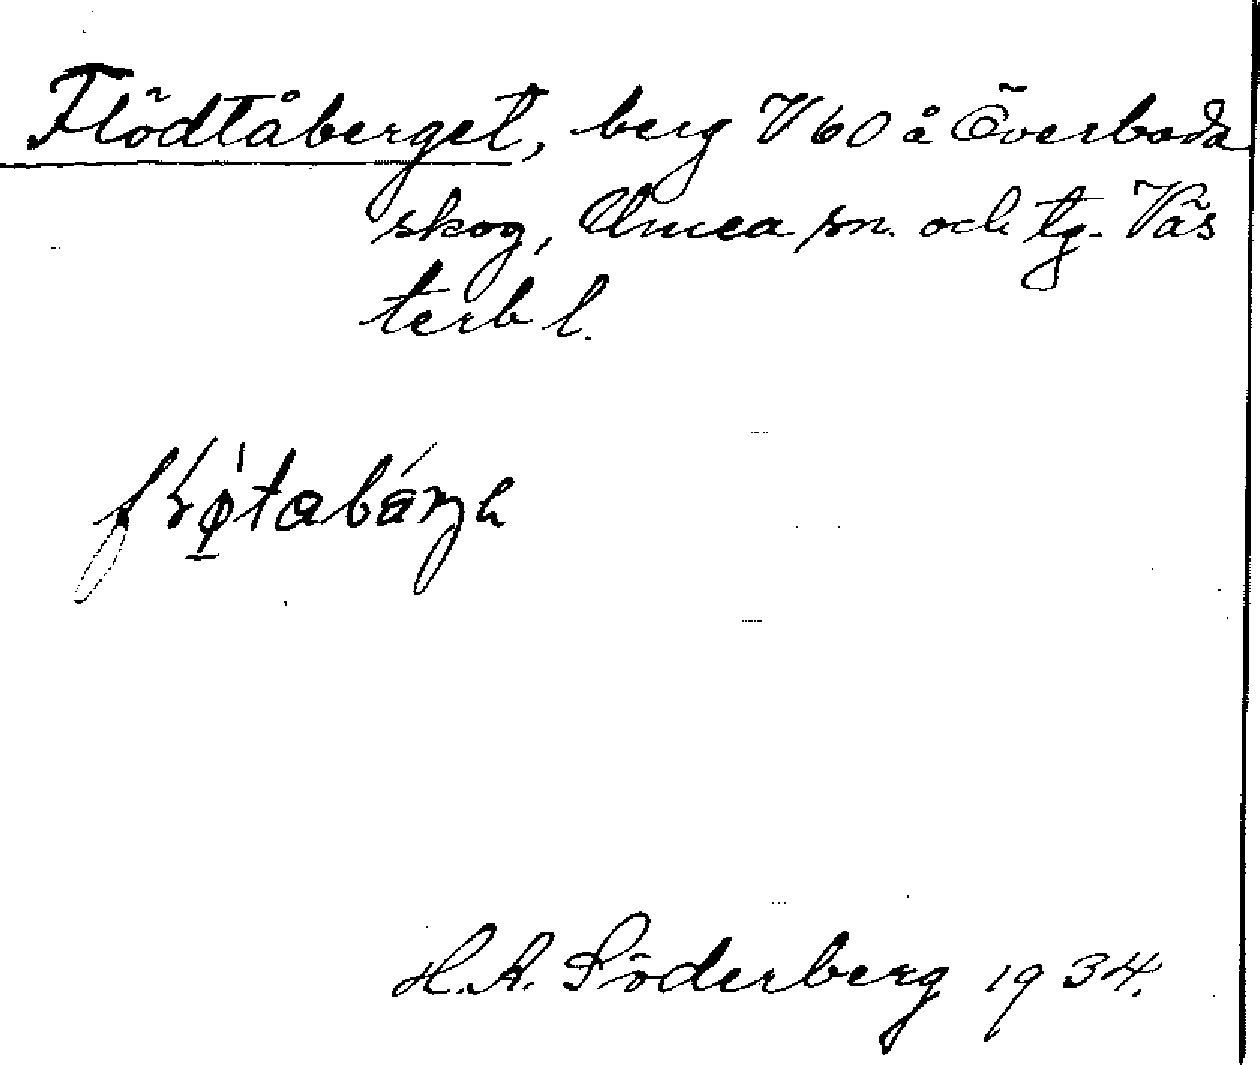 Flödtåberget, berg V 60 å Överboda
skog, Umeå sn. och tg. Väs
terb l.
H. A. Söderberg 1934.